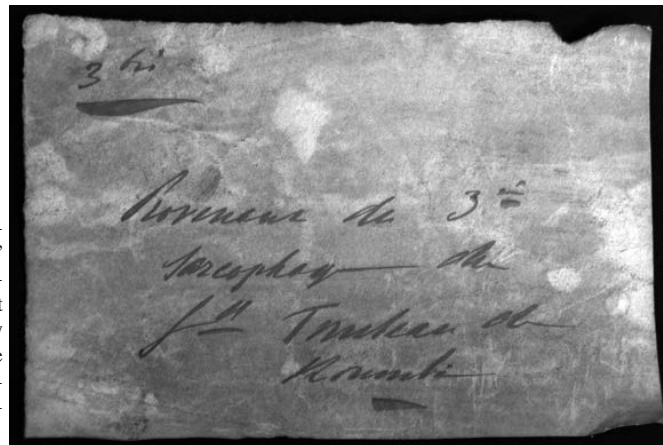 3 bis
Provenant du 3me
sarcophag du
gd Tombeau de